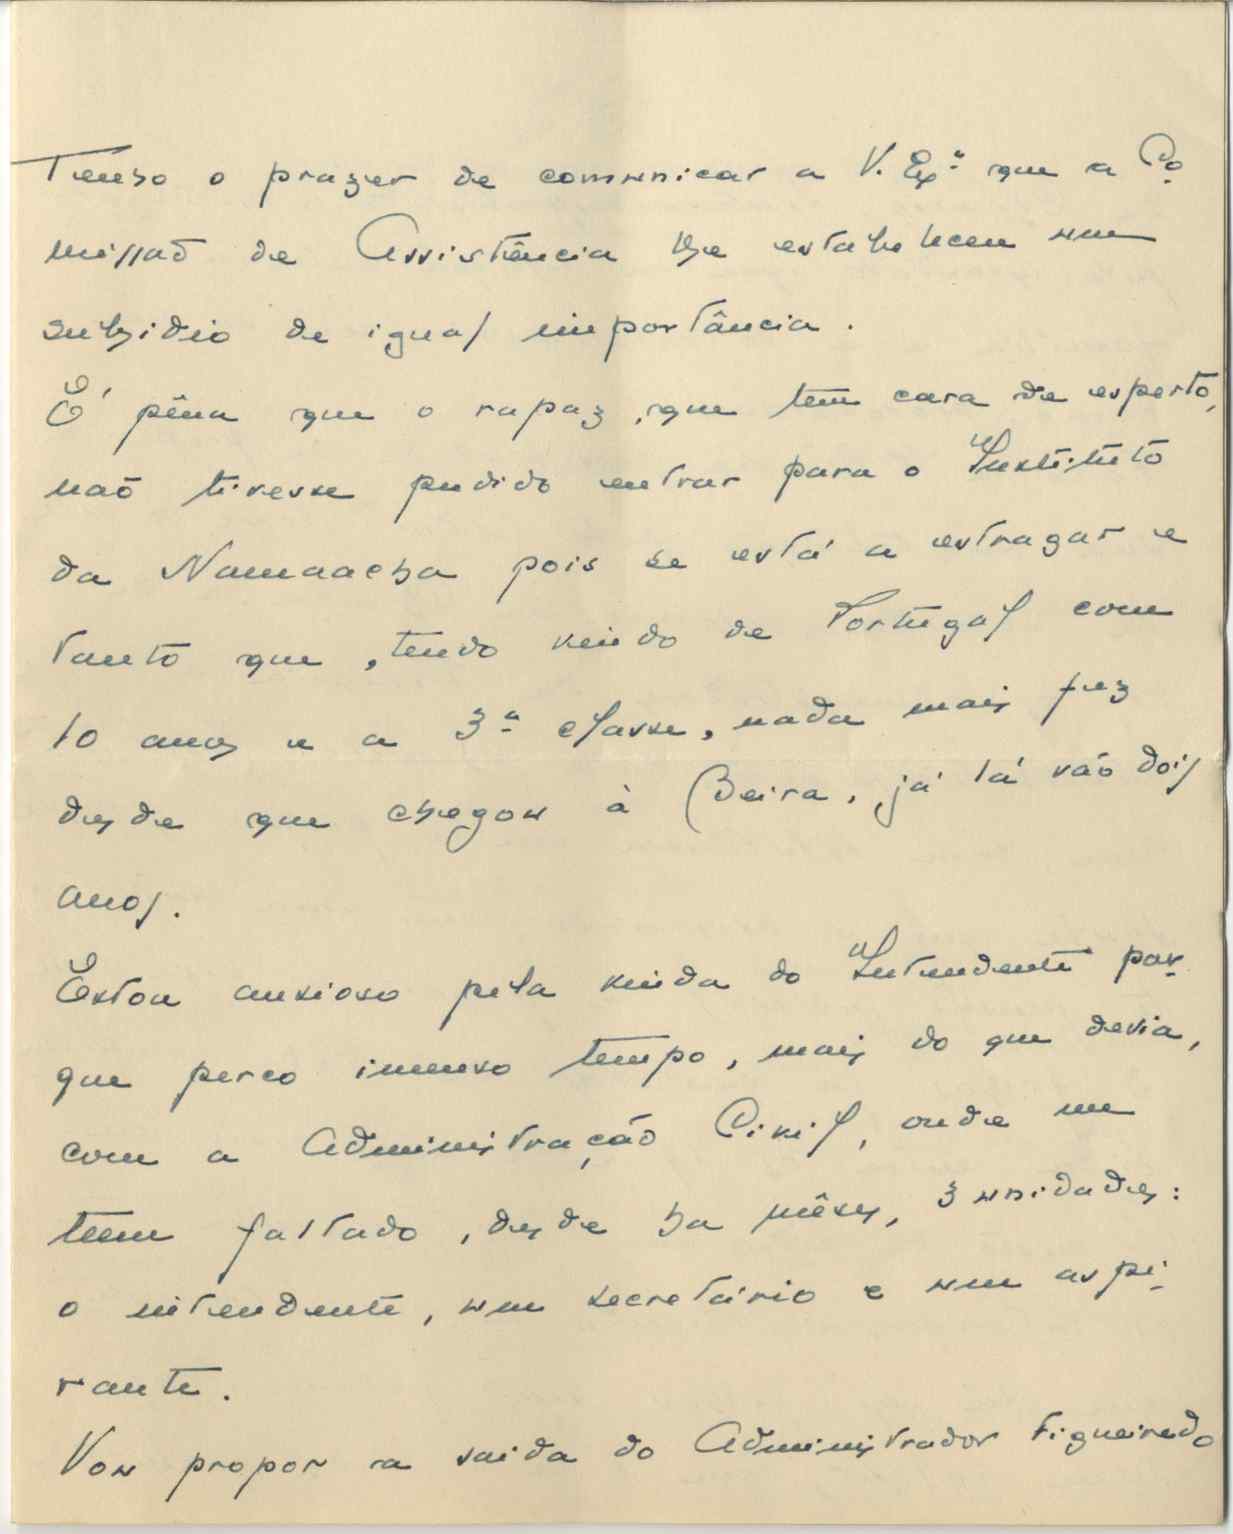 Tenho o prazer de comunicar a V. Exª que a Co-
missaõ de Assistência lhe estabeleceu um
subsidio de igual importância.
É pêna que o rapaz, que tem cara de esperto,
naõ tivesse pudido entrar para o Instituto
da Namaacha pois se está a estragar e
tanto que, tendo vindo de Portugal com
10 anos e a 3ª classe, nada mais fez
desde que chegou à Beira, já lá vão dois
anos.
Estou ansioso pela vinda do Intendente por-
que perco imenso tempo, mais do que devia,
com a Administração Civil, onde me
teem faltado, desde ha mêses, 3 unidades:
o intendente, um secretário e um aspi-
rante.
Vou propor a saida do Administrador Figueiredo